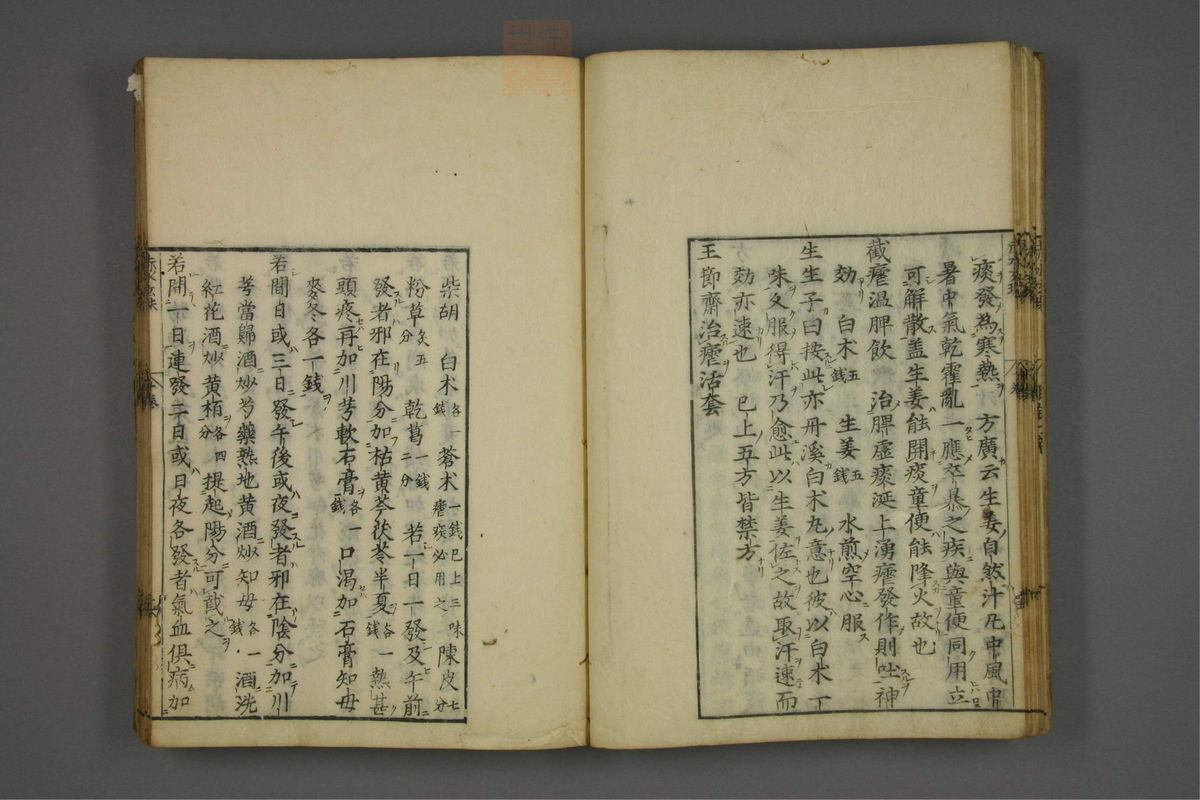 痰發為寒熱　方廣云生姜自然汁凡中風中
暑中氣乾霍亂一應卒暴之疾與童便同用立
可解散盖生姜能開痰童便能降火故也
截瘧温脾飲　治脾虚痰涎上湧瘧發作則吐神
効　白术五錢　生姜五錢　水煎空心服
生生子曰按此亦丹溪白术丸意也彼以白术一
味久服得汗乃愈此以生姜佐之故取汗速而
効亦速也　已上五方皆禁方
王節齋治瘧活套
柴胡　白术各一錢　蒼术一錢已上三味瘧疾必用之　陳皮七分
粉草炙五分　乾葛一錢二分　若一日一發及午前
發者邪在陽分加枯黄芩茯苓半夏各一錢　熱甚
頭疼再加川芎軟石膏各一錢　口渴加石膏知母
麥冬各一錢
若間日或三日發午後或夜發者邪在陰分加川
芎當歸酒炒芍藥熟地黄酒炒知母各一錢　酒洗
紅花酒炒黄栢各四分　提起陽分可截之
若間一日連發二日或日夜各發者氣血俱病加